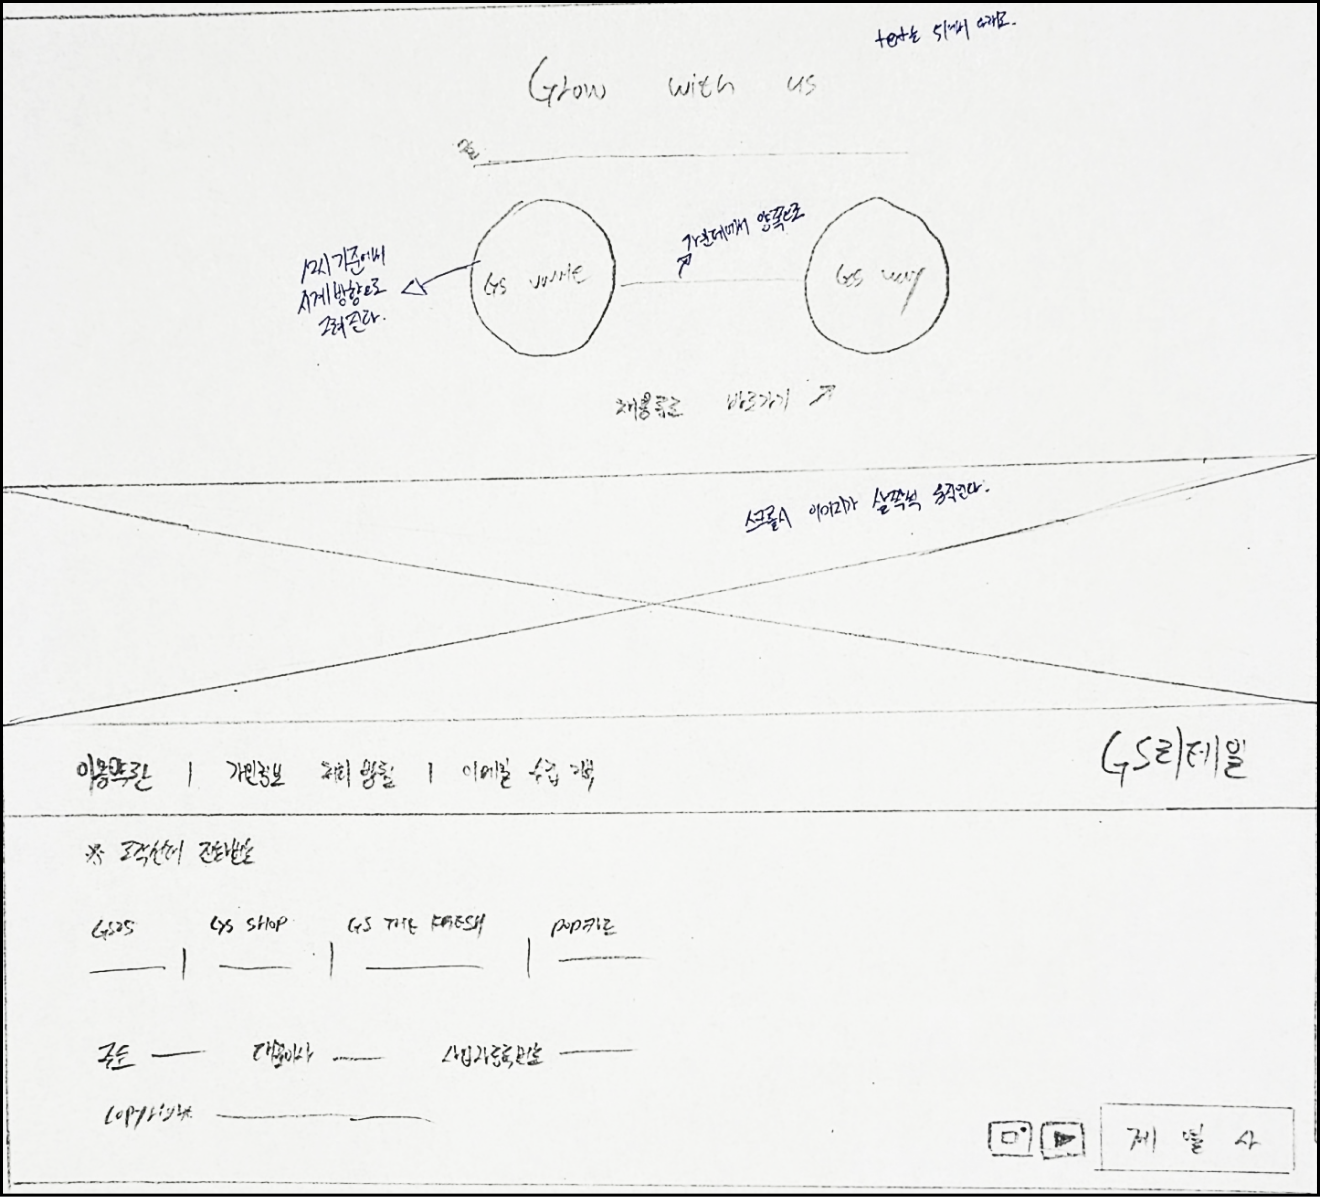 text는 위에서 아래로.
Grow with us
12시 기준에서
시계방향으로
그려진다.
가운데에서 양쪽으로
GS
GS way
채용공고 바로가기
스크롤시 이미지가 살짝씩 움직인다.
이용약관 | 개인정보 처리 방침 | 이메일 수집 거부
GS리테일
※ 고객센터 전화번호
GS25
GS SHOP
GS THE FRESH
POP카드
주소
대표이사
사업자등록번호
Copyright
계 열 사